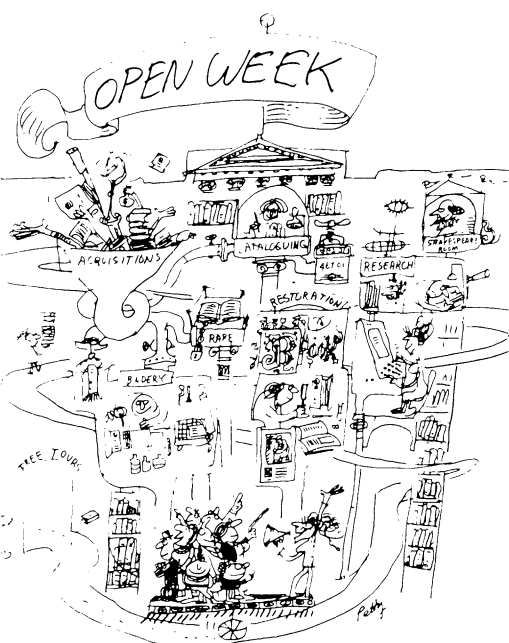 OPEN WEEK
ACQUISITIONS
ATALOGUING
SHAKESPEARE
ROOM
RESEARCH
RESTORATION
RARE
BLDERY
FREE TOURS